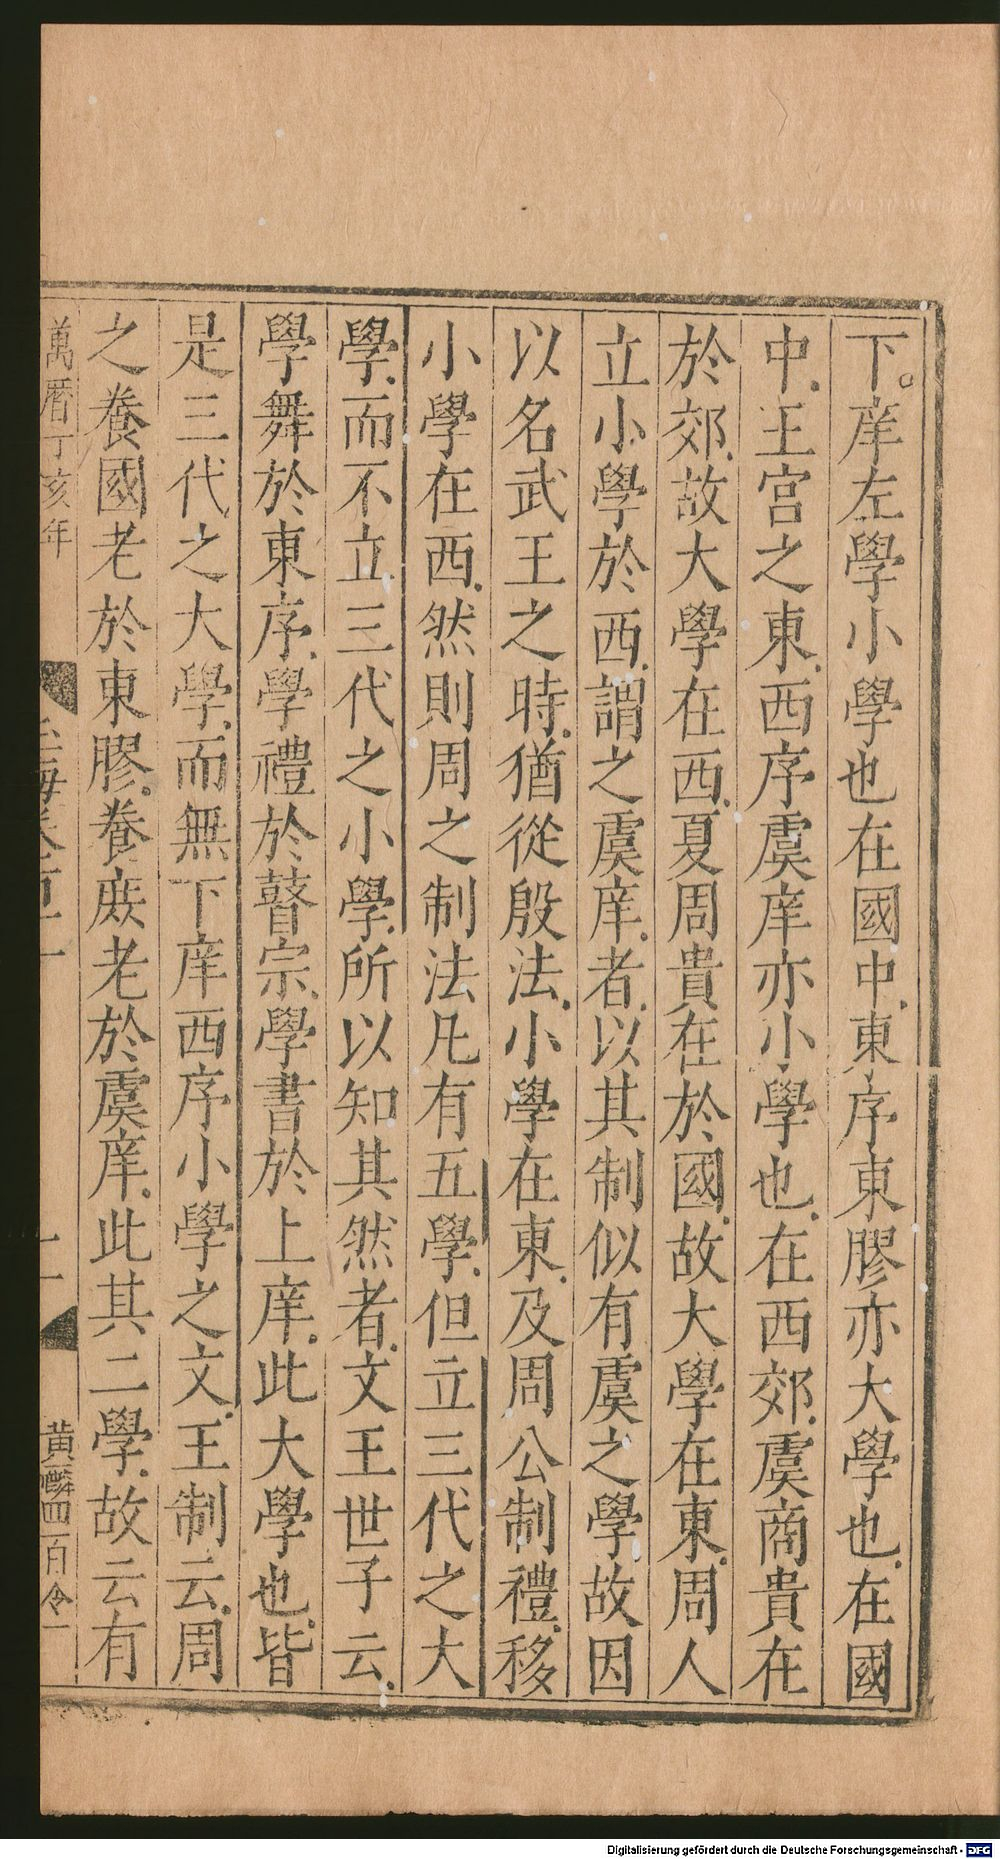 下庠左學小學也在國中東序東膠亦大學也在國
中王宮之東西序虞庠亦小學也在西郊虞商貴在
於郊故大學在西夏周貴在於國故大學在東周人
立小學於西謂之虞庠者以其制似有虞之學故因
以名武王之時猶從殷法小學在東及周公制禮移
小學在西然則周之制法凡有五學但立三代之大
學而不立三代之小學所以知其然者文王世子云
學舞於東序學禮於瞽宗學書於上庠此大學也皆
是三代之大學而無下庠西序小學之文王制云周
之養國老於東膠養庶老於虞庠此其二學故云有
萬曆丁亥年
玉海卷百十二
黃麟四百令一
Digitalisierung gefördert durch die Deutsche Forschungsgemeinschaft - DFG